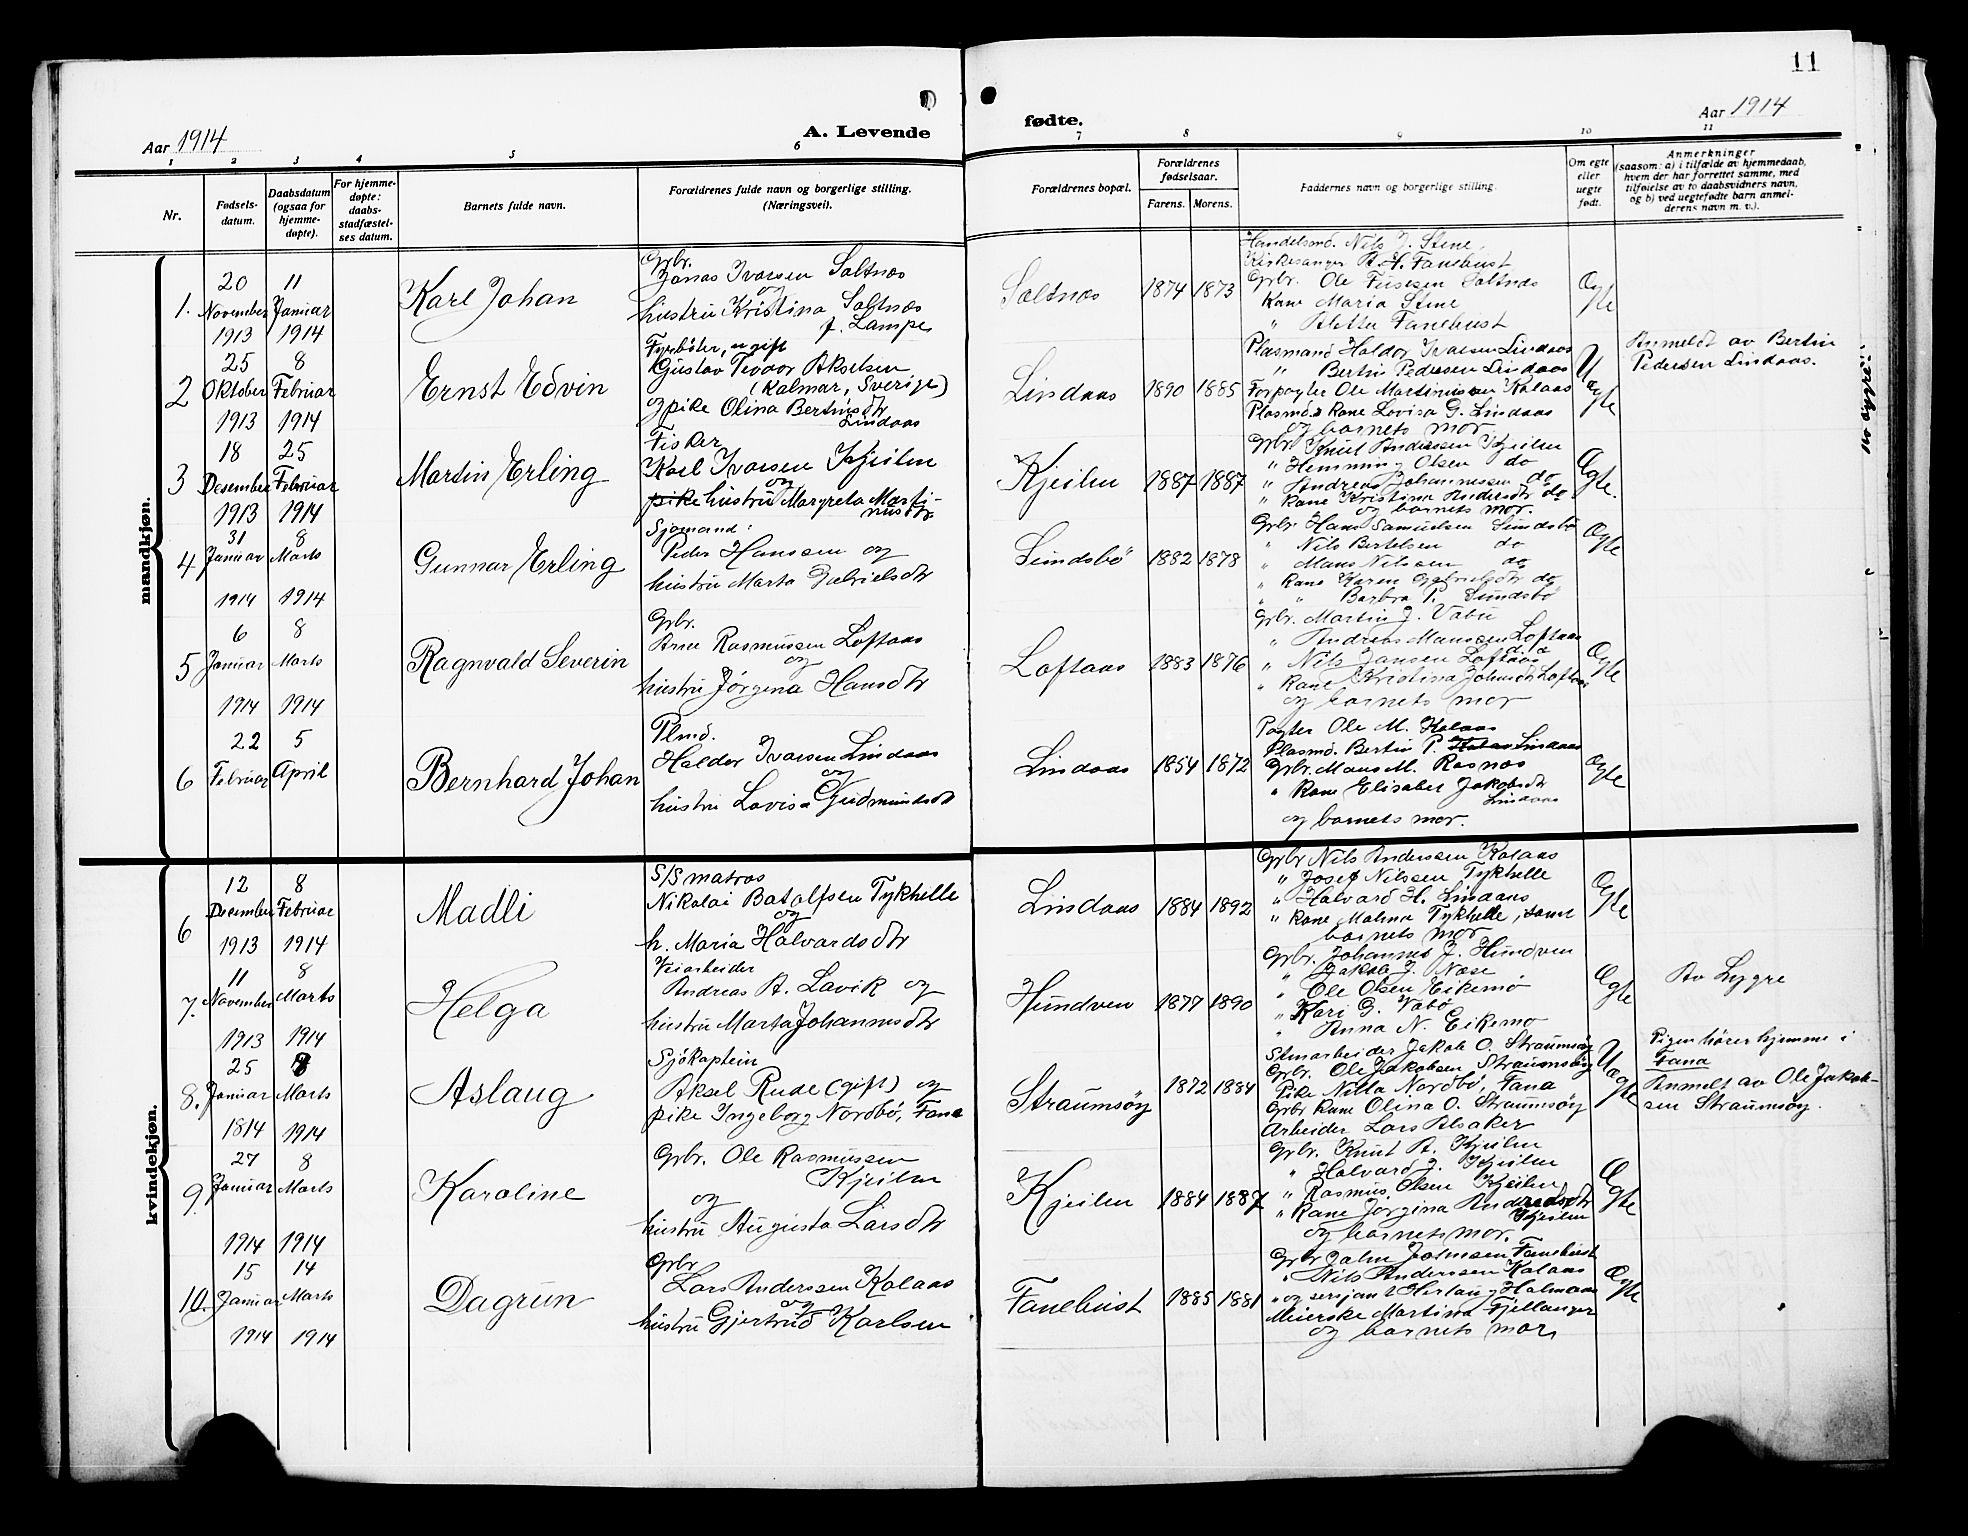 11
Aar 1914
A. Levende
fødte.
Aar 1914
1 2 3 4 5 6 7 8 9 10 11
Nr.
Fødsels-
datum.
Daabsdatum
(ogsaa for
hjemme-
døpte).
For hjemme-
døpte:
daabs-
stadfæstel-
ses datum.
Barnets fulde navn.
Forældrenes fulde navn og borgerlige stilling.
(Næringsvei).
Forældrenes bopæl.
Forældrenes
fødselsaar.
Farens. Morens.
Faddernes navn og borgerlige stilling.
Om egte
eller
uegte
født.
Anmerkninger
(saasom: a) i tilfælde av hjemmedaab,
hvem der har forrettet samme, med
tilføielse av to daabsvidners navn,
og b) ved uegtefødte barn anmel-
derens navn m. v.).
mandkjøn.
1.
20
November
1913
11
Januar
1914
Karl Johan
Grbr.
Jonas Ivarsen Saltnæs
og
hustru Kristina Saltnæs
f. Lampe
Saltnæs
1874 1873
Handelsmd. Nils J. Stene
Kirkesanger A. H. Fanebust
Grbr. Ole Saltnæs
Kone Maria Stene
" Aletta Fanebust
Egte
2
25
Oktober
1913
8
Februar
1914
Ernst Edvin
Fyrbøter, ugift
Gustav Teodor Akselsen
(Kalmar, Sverige)
og pike Olina Bertinsdtr
Lindaas
Lindaas
1890 1885
Plasmand Haldor Ivarsen Lindaas
" Bertin Pedersen Lindaas
Forpagter Ole Martinussen Kolaas
Plasmds kone Lovisa G. Lindaas
og barnets mor
Uegte
Anmeldt av Bertin
Pedersen Lindaas.
3
18
Desember
1913
25
Februar
1914
Martin Erling
Fisker
Karl Ivarsen Kjeilen
og
pike hustru Margreta Marti-
nusdtr
Kjeilen
1887 1887
Grbr. Knut Andersen Kjeilen
" Hemming Olsen do
" Andreas Johannessen do
" Kone Kristina Andersdtr do
og barnets mor.
Egte.
4
31
Januar
1914
8
Marts
1914
Gunnar Erling
Sjømand:
Peder Hansen og
hustru Marta Gabrielsdtr
Sundsbö
1882 1878
Grbr. Hans Samuelsen Sundsbö
" Nils Bertelsen do
" Mons Nilsen do
" Kone Karen Gabrielsdtr do
" " Barbra P. Sundsbö
Egte
5
6
Januar
1914
8
Marts
1914
Ragnvald Severin
Grbr.
Arne Rasmussen Loftaas
og
hustru Jørgina Hansdtr
Loftaas
1883 1876
Grbr. Martin J. Vabø
" Andreas Monssen Loftaas
" Nils Jansen Loftaas
" Kone Kristina Johnsdtr Loftaas
og barnets mor
Egte
6
22
Februar
5
April
Bernhard Johan
Plmd.
Haldor Ivarsen Lindaas
og
hustru Lovisa Gudmundsdt
Lindaas
1854 1872
Pagter Ole M. Kolaas
Plasmd. Bertin P. Lindaas
Grbr. Mons M. Rosnæs
" Kone Elisabet Jakobsdtr
Lindaas
og barnets mor.
Egte
kvindekjøn.
6
12
Desember
1913
8
Februar
1914
Madli
S/S matros
Nikolai Batolfsen Tykhelle
og
h. Maria Halvardsdtr
Lindaas
1884 1892
Grbr Nils Anderssen Kolaas
" Josef Nilssen Tykhelle
" Halvard H. Lindaas
" Kone Malena Tykhelle, samt
barnets mor
Egte
7.
11
November
1913
8
Marts
1914
Helga
Veiarbeider
Andreas A. Lavik og
hustru Marta Johannesdtr
Hundven
1877 1890
Grbr. Johannes J. Hundven
" Jakob J. Nese
" Ole Olsen Eikemo
" Kari G. Vabø
" Anna N. Eikemo
Egte
Av Lygre
8.
25
Januar
1814
8
Marts
1914
Aslaug
Sjökaptein
Aksel Rude (gift) og
pike Ingeborg Nordbö, Fana
Straumsöy
1872 1884
Stenarbeider Jakob O. Straumsöy
Grbr. Ole Jakobsen Straumsöy
Pike Nilla Nordbö, Fana
Grbr Kone Olina O. Straumsöy
Arbeider Lars Alsaker
Uegte
Pigen hører hjemme i
Fana
Anmelt av Ole Jakob-
sen Straumsöy.
9.
27
Januar
1914
8
Marts
1914
Karoline
Grbr. Ole Rasmussen
Kjeilen
og
hustru Augusta Larsdtr
Kjeilen
1884 1887
Grbr. Knut A. Kjeilen
" Halvard J. Kjeilen
" Rasmus Olsen Kjeilen
" Kone Jørgina Andreasdtr
Kjeilen
og barnets mor.
Egte
10.
15
Januar
1914
14
Marts
1914
Dagrun
Grbr
Lars Anderssen Kolaas
og
hustru Gjertrud Karlsen
Fanebust
1885 1881
Grbr John Johnsen Fanebust
" Nils Anderssen Kolaas
" og sersjant Herlaug Holmaas
Meierske Martina Fjellanger
og barnets mor,
Egte